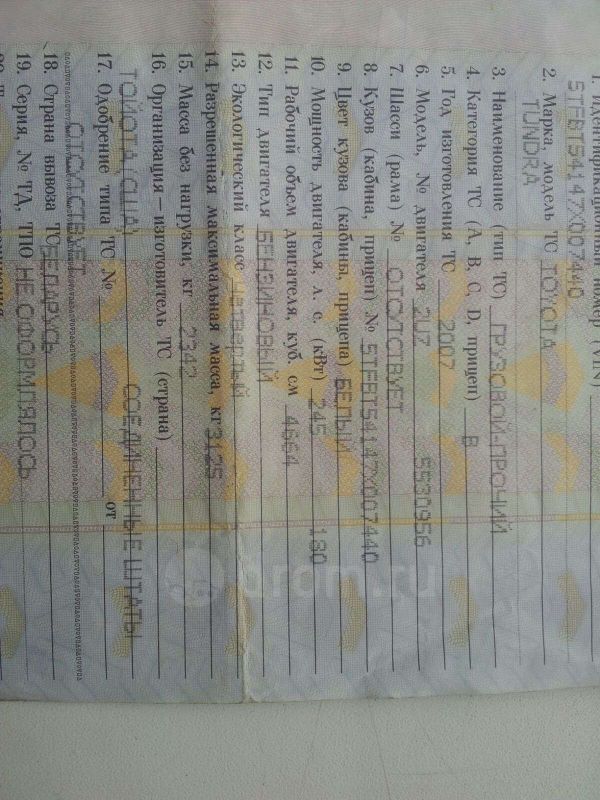 1. Идентификационный номер (VIN)
5TFBT54147X007440
2. Марка, модель ТС TOYOTA
TUNDRA
3. Наименование (тип ТС) ГРУЗОВОЙ-ПРОЧИЙ
4. Категория ТС (A, B, C, D, прицеп) B
5. Год изготовления ТС 2007
6. Модель, № двигателя 2UZ 5530956
7. Шасси (рама) № ОТСУТСТВУЕТ
8. Кузов (кабина, прицеп) № 5TFBT54147X007440
9. Цвет кузова (кабины, прицепа) БЕЛЫЙ
10. Мощность двигателя, л. с. (кВт) 245 180
11. Рабочий объем двигателя, куб. см 4664
12. Тип двигателя БЕНЗИНОВЫЙ
13. Экологический класс ЧЕТВЕРТЫЙ
14. Разрешенная максимальная масса, кг 3125
15. Масса без нагрузки, кг 2342
16. Организация – изготовитель ТС (страна)
ТОЙОТА (США) СОЕДИНЕННЫЕ ШТАТЫ
17. Одобрение типа ТС № от
ОТСУТСТВУЕТ
18. Страна вывоза ТС БЕЛАРУСЬ
19. Серия, № ТД, ТПО НЕ ОФОРМЛЯЛОСЬ
drom.ru